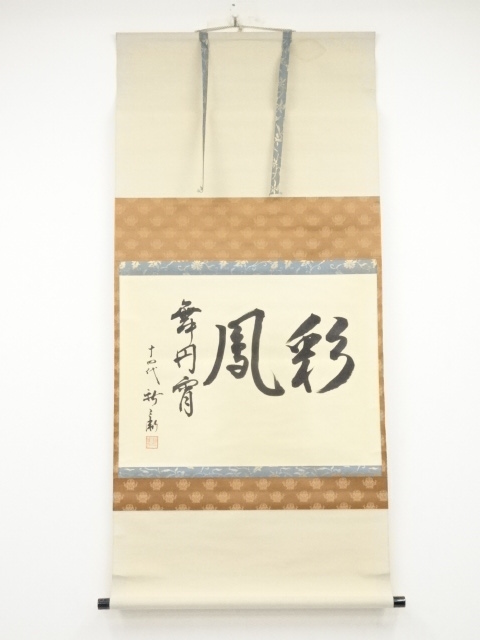 彩鳳
舞丹霄
十四代